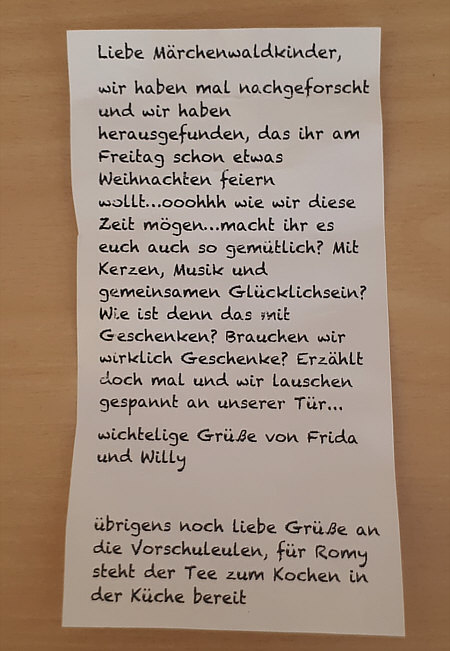 Liebe Märchenwaldkinder,
wir haben mal nachgeforscht
und wir haben
herausgefunden, das ihr am
Freitag schon etwas
Weihnachten feiern
wollt...ooohhh wie wir diese
Zeit mögen...macht ihr es
euch auch so gemütlich? Mit
Kerzen, Musik und
gemeinsamen Glücklichsein?
Wie ist denn das mit
Geschenken? Brauchen wir
wirklich Geschenke? Erzählt
doch mal und wir lauschen
gespannt an unserer Tür...
wichtelige Grüße von Frida
und Willy
übrigens noch liebe Grüße an
die Vorschuleulen, für Romy
steht der Tee zum Kochen in
der Küche bereit